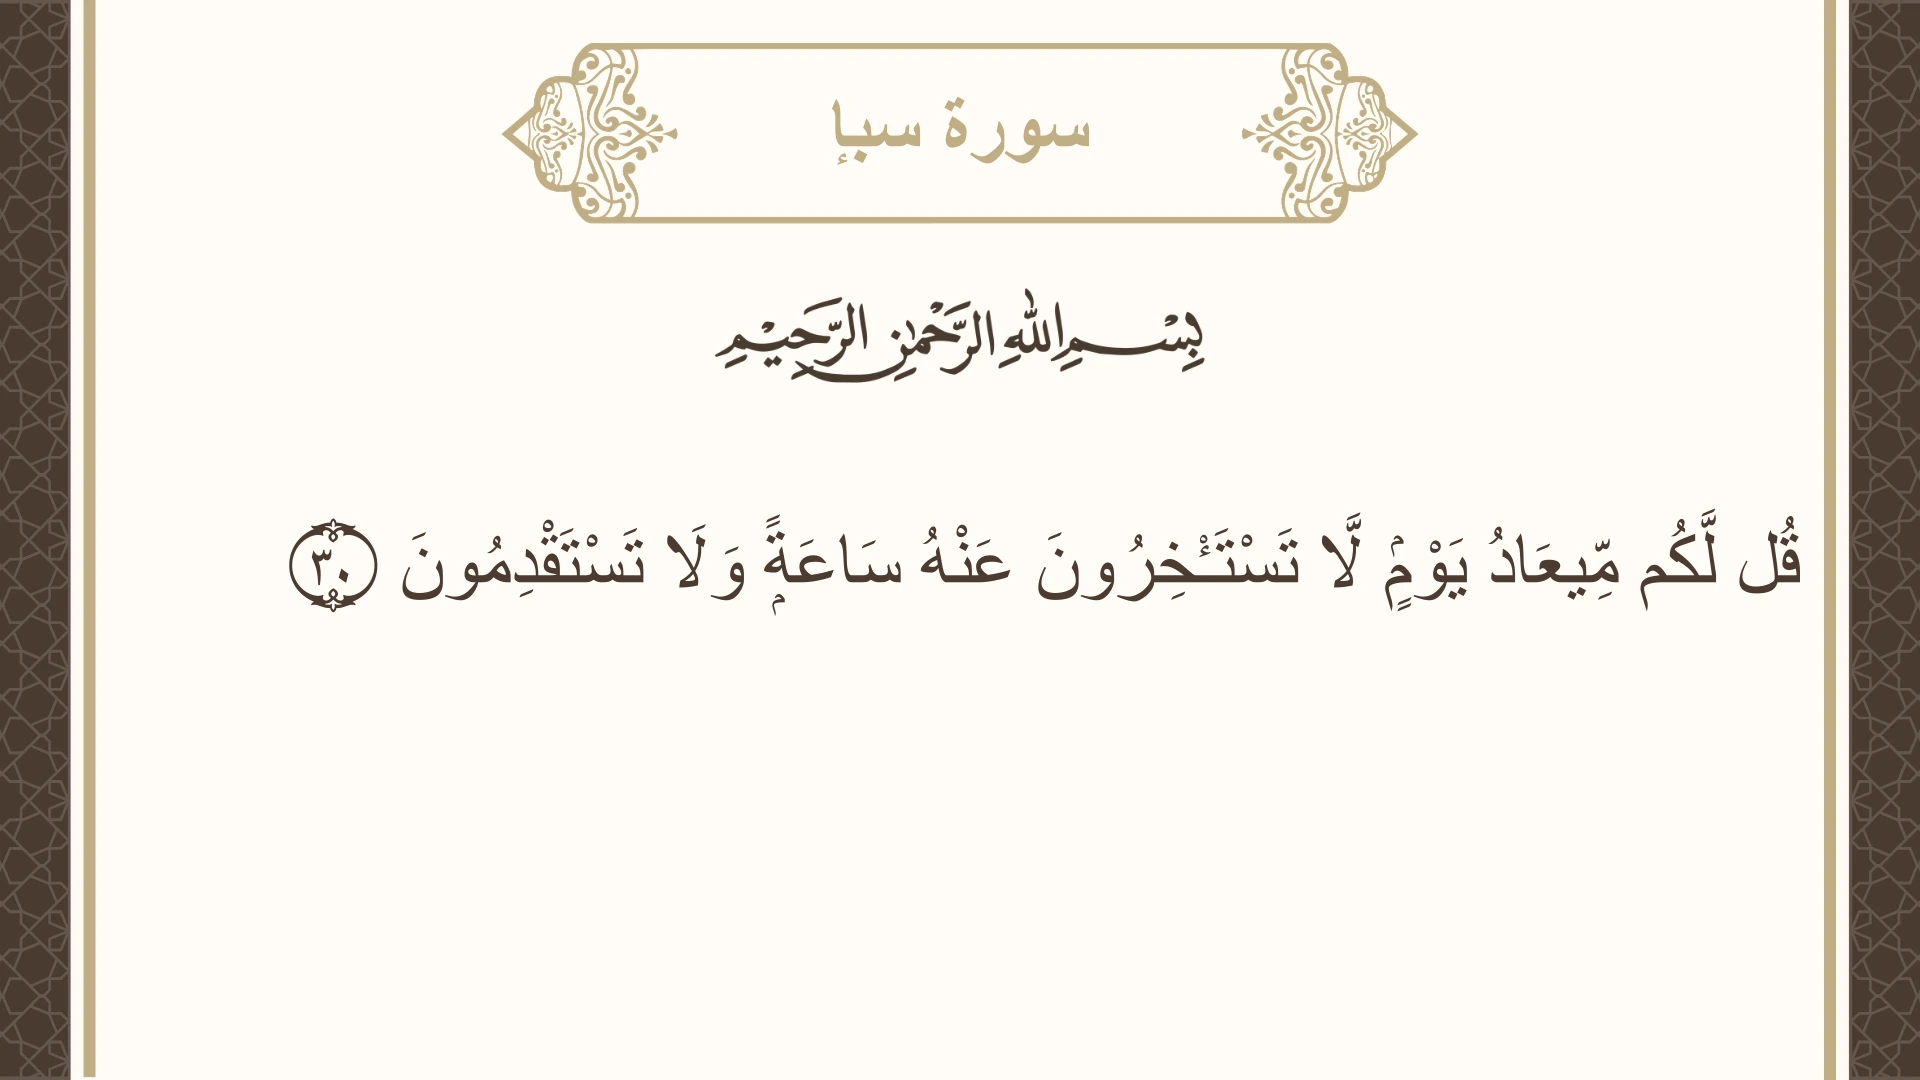 سورة سبإ
بِسْمِ اللهِ الرَّحْمٰنِ الرَّحِيْمِ
قُل لَّكُم مِّيعَادُ يَوْمٍۢ لَّا تَسْتَـْٔخِرُونَ عَنْهُ سَاعَةًۭ وَلَا تَسْتَقْدِمُونَ ٣٠